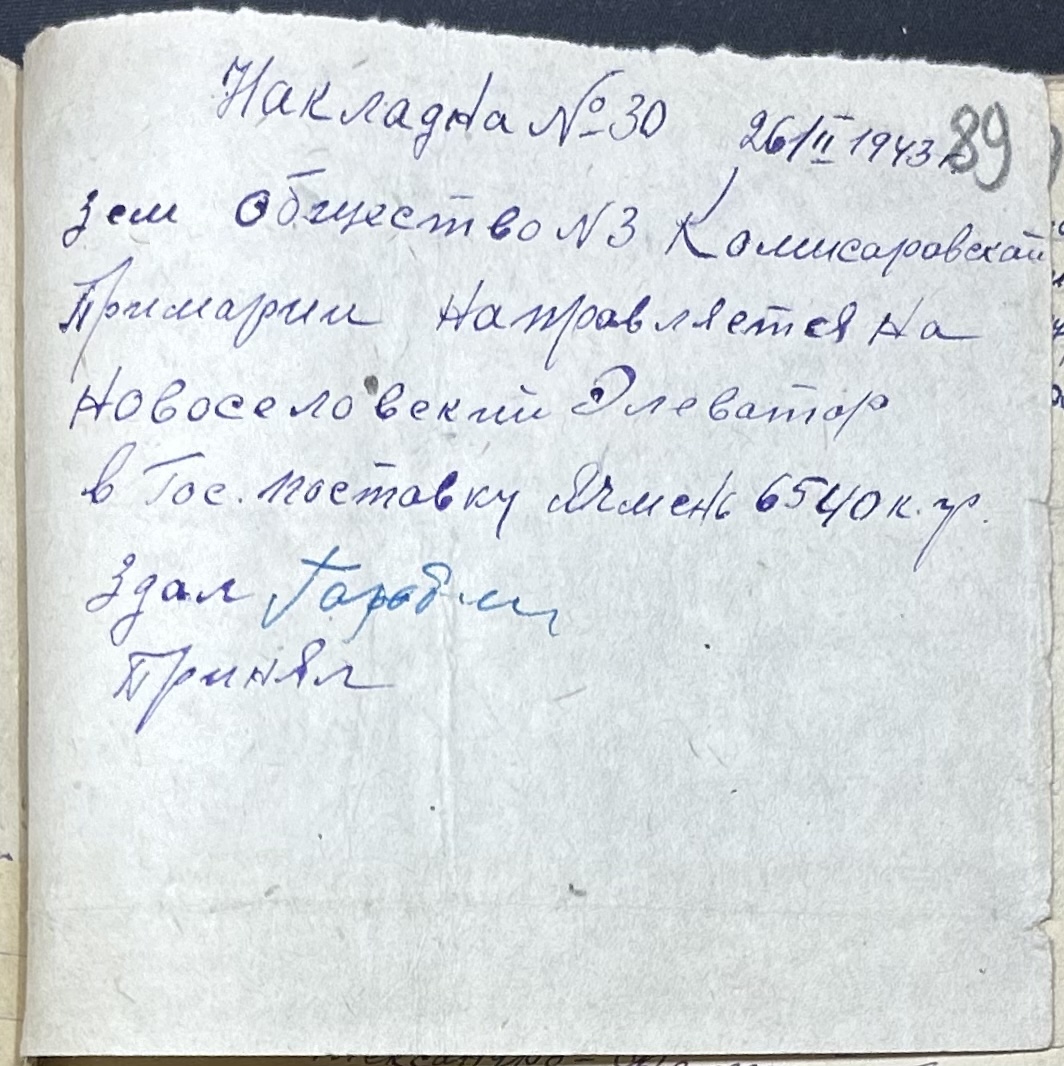 Накладна № 30 26/II 1943 г. 89
Зем Общество N 3 Комисаровской
Примарии направляется на
Новоселовский Элеватор
в Гос. поставку Ячмень 6540 к.гр.
Здал
Принял